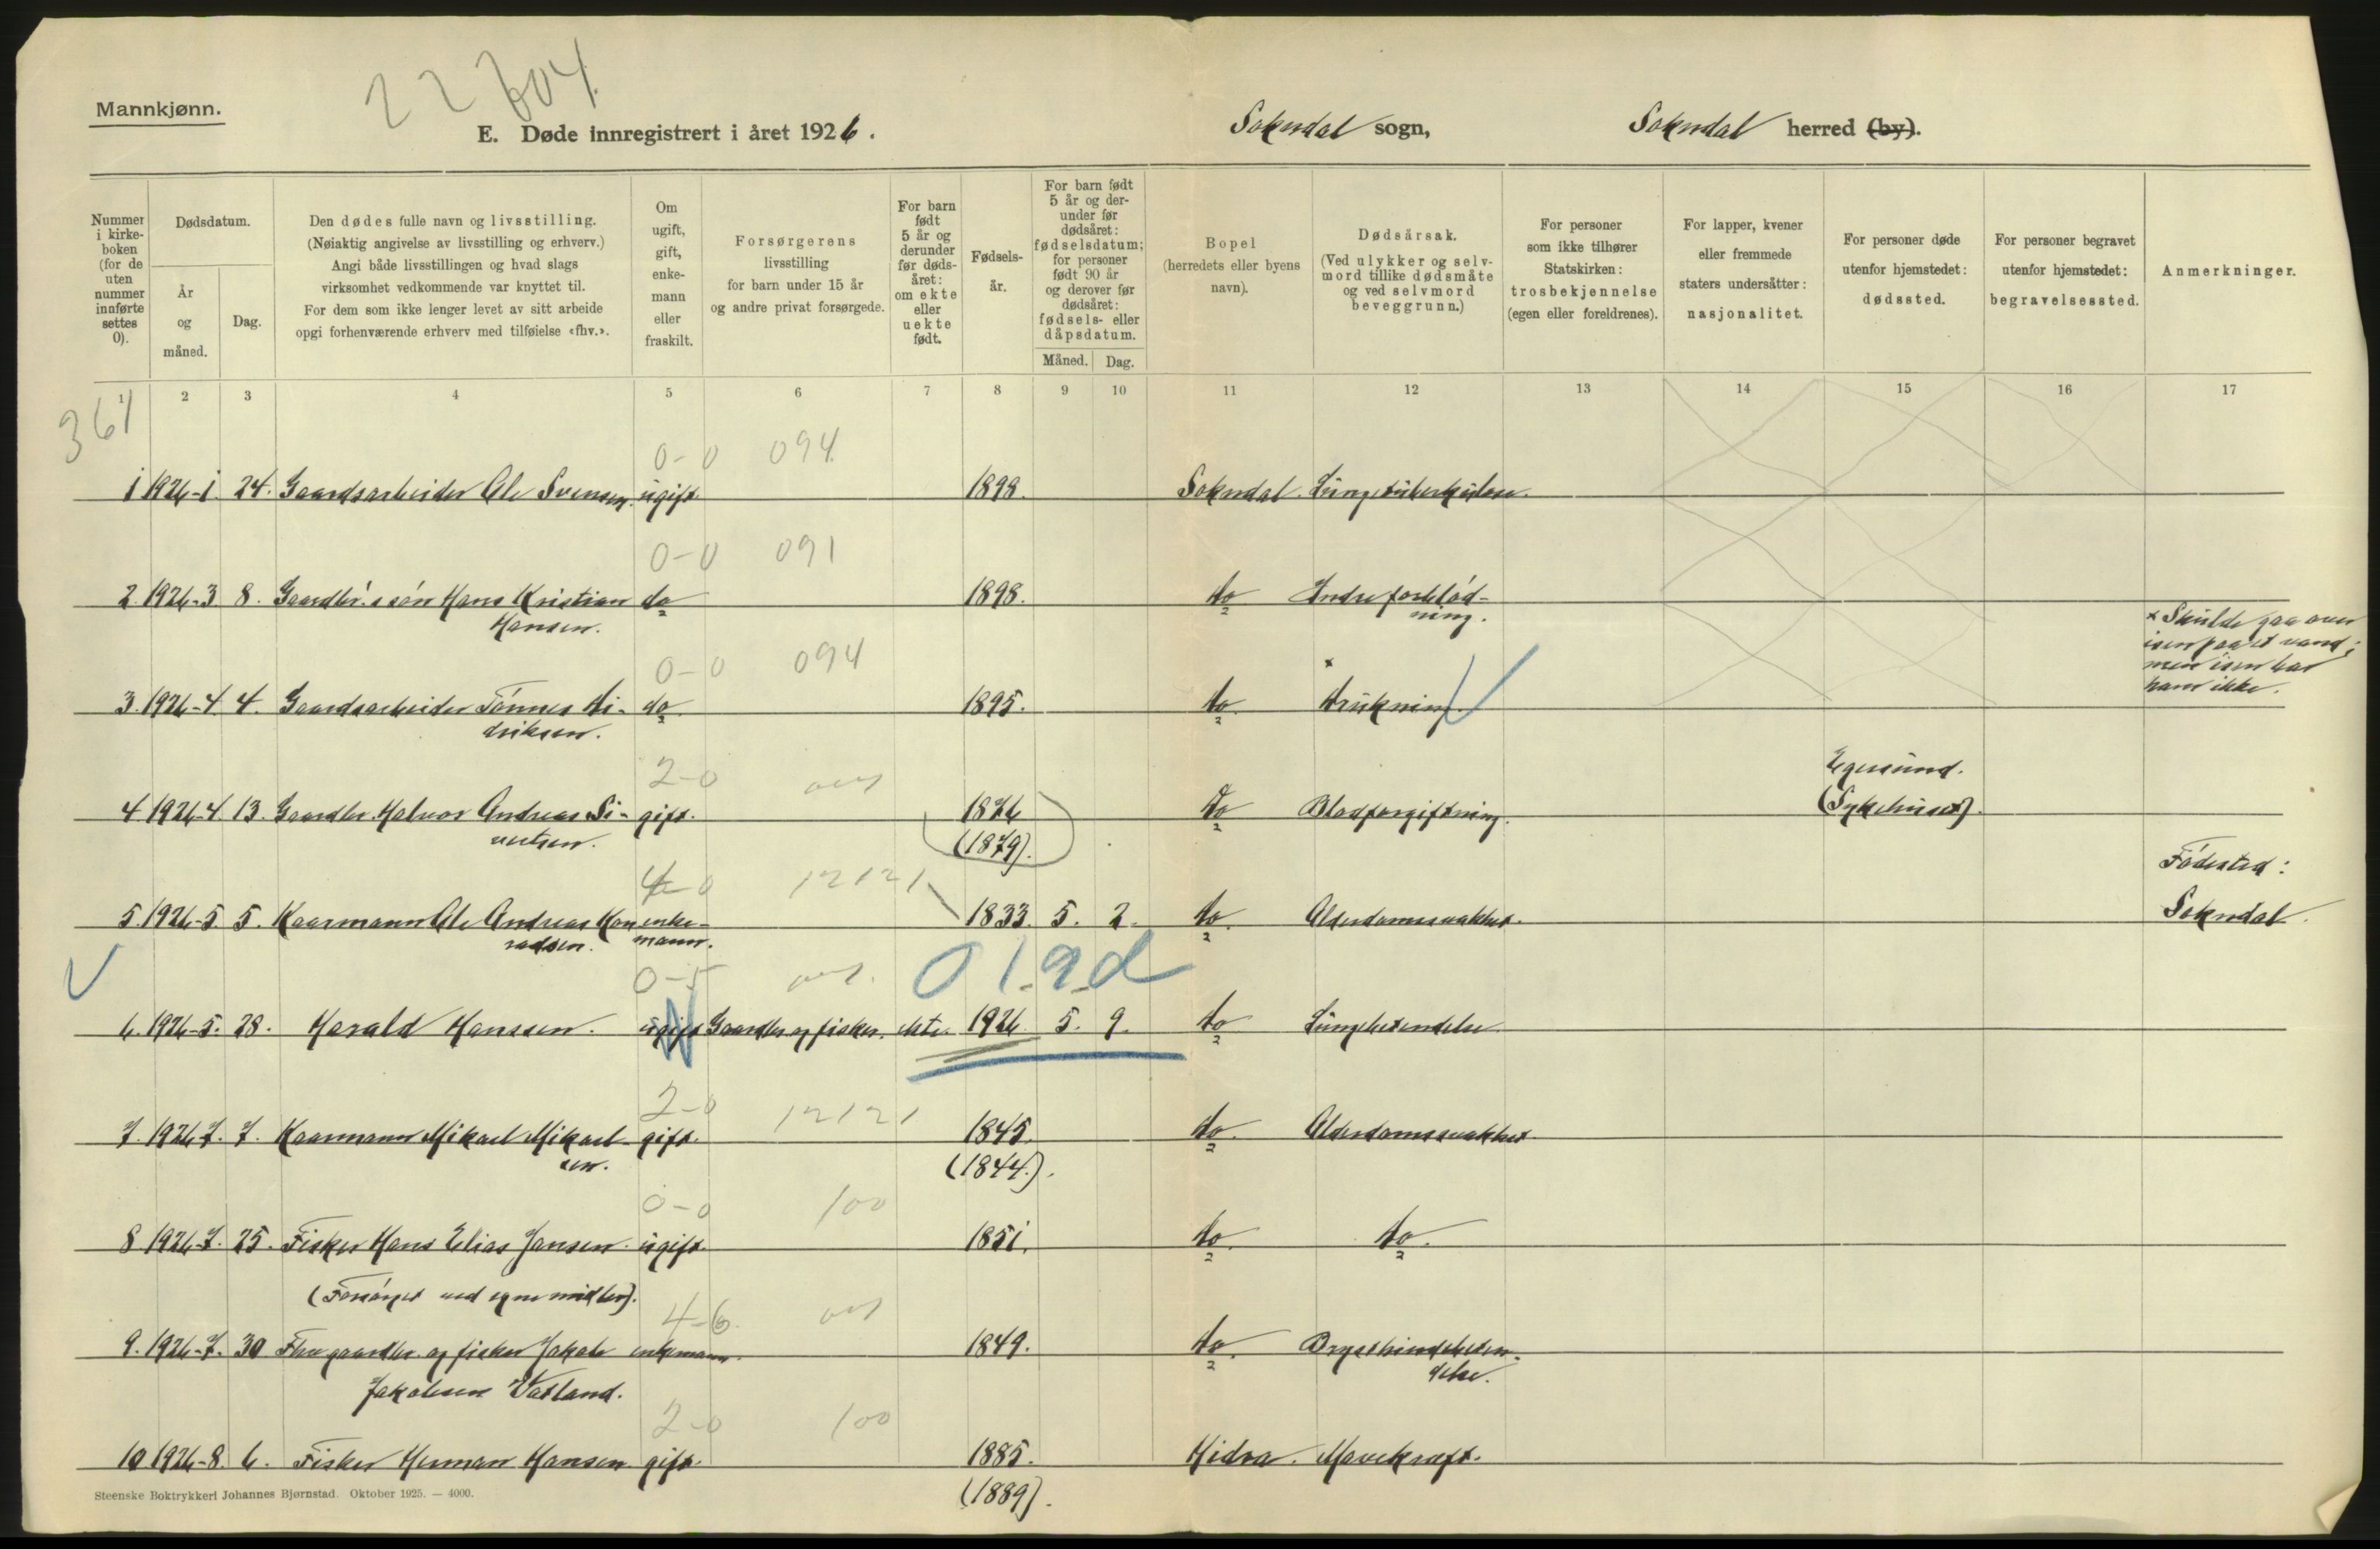 22604
Mannkjønn.
E. Døde innregistrert i året 1926. Sokndal sogn, Sokndal herred (by).
Nummer i kirkeboken (for de uten nummer innførte settes 0).
Dødsdatum.
År og måned.
Dag.
Den dødes fulle navn og livsstilling.
(Nøiaktig angivelse av livsstilling og erhverv.)
Angi både livsstillingen og hvad slags
virksomhet vedkommende var knyttet til.
For dem som ikke lenger levet av sitt arbeide
opgi forhenværende erhverv med tilføielse «fhv.».
Om ugift, gift, enkemann eller fraskilt.
Forsørgerens
livsstilling
for barn under 15 år
og andre privat forsørgede.
For barn født 5 år og derunder før dødsåret: om ekte eller uekte født.
Fødselsår.
For barn født 5 år og derunder før dødsåret: fødselsdatum; for personer født 90 år og derover før dødsåret: fødsels- eller dåpsdatum.
Måned. Dag.
Bopel
(herredets eller byens
navn).
Dødsårsak.
(Ved ulykker og selvmord tillike dødsmåte
og ved selvmord
beveggrunn.)
For personer
som ikke tilhører
Statskirken:
trosbekjennelse
(egen eller foreldrenes).
For lapper, kvener
eller fremmede
staters undersåtter:
nasjonalitet.
For personer døde
utenfor hjemstedet:
dødssted.
For personer begravet
utenfor hjemstedet:
begravelsessted.
Anmerkninger.
1 2 3 4 5 6 7 8 9 10 11 12 13 14 15 16 17
361
0-0 094
1 1926-1. 24. Gaardsarbeider Ole Svensen. ugift 1898. Sokndal. Lungetuberkulose.
0-0 091
2. 1926-3 8. Gaardbr.s søn Hans Kristian do 1898. do Indre forblød-
Hansen. ning.
x Skulde gaa over
isen paa et vand;
men isen bar
ham ikke.
0-0 094
x
3. 1926-4. 4. Gaardsarbeider Tønnes Di- do 1895. do Drukning.
driksen.
2-0
4 1926-4. 13. Gaardbr. Halvor Andreas Si- gift. 1876 do Blodforgiftning. Egersund.
vertsen. (1879). (Sykehuset).
4-0 12121
5. 1926-5. 5. Kaarmann Ole Andreas Kon enke- 1833. 5. 2. do. Alderdomssvakhet. Fødested:
radsen. mann. Sokndal.
0-5 0 1.9.d
6. 1926-5. 28. Harald Hanssen. ugift Gaardbr. og fisker. ekte. 1926. 5. 9. do Lungebetendelse
2-0 12121
7. 1926-7. 7. Kaarmann Mikael Mikael- gift. 1845. do. Alderdomssvakhet.
sen. (1844.).
0-0 100
8 1926-7. 25. Fisker Hans Elias Jansen. ugift. 1851. do. do.
(Forsørget ved egne midler).
4-6.
9. 1926-7. 30 Fhv. gaardbr. og fisker Jakob enkemann. 1849. do. Brysthindebeten-
Jakobsen Vatland. delse.
2-0 100
10 1926-8. 6. Fisker Herman Hansen gift. 1885. Hidra. Mavekræft.
(1889).
Steenske Boktrykkeri Johannes Bjørnstad. Oktober 1925. — 4000.